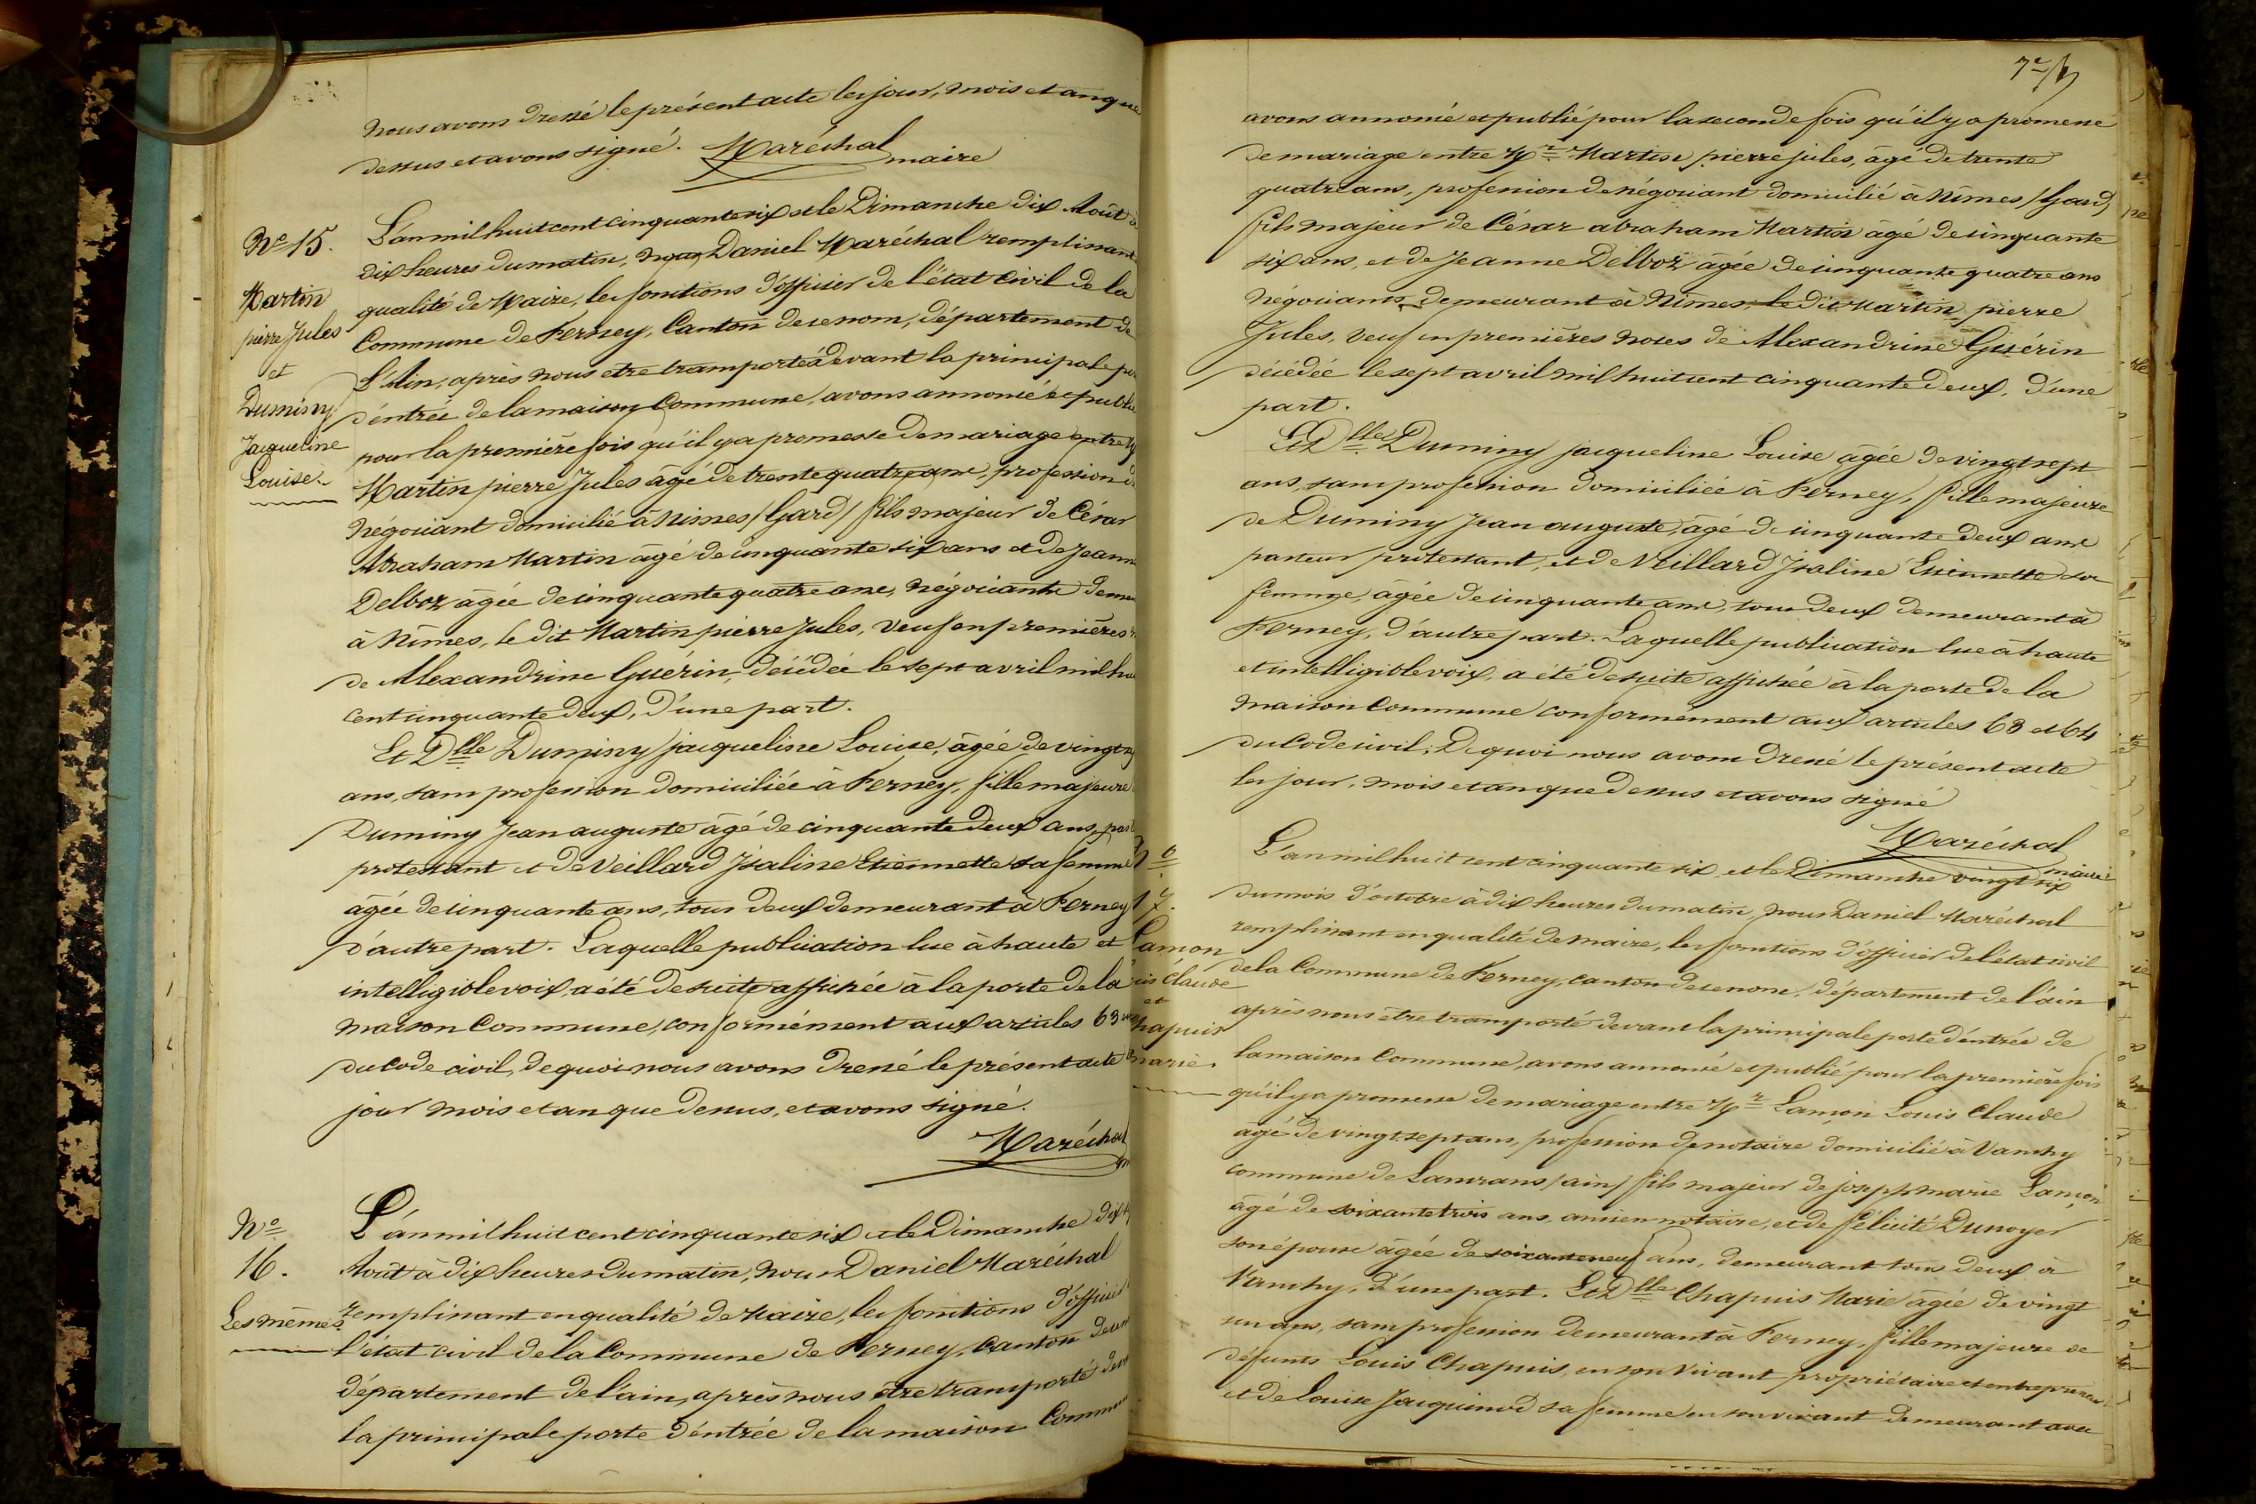 nous avons dressé le présent acte les jour, mois et an que
dessus et avons signé. Maréchal
maire
No 15.
Martin
pierre Jules
et
Duminy
Jacqueline
Louise.
L'an mil huit cent cinquante six et le Dimanche dix Août à
dix heures du matin, nous Daniel Maréchal remplissant
qualité de Maire, les fonctions d'officier de l'état civil de la
Commune de Ferney, Canton de ce nom, département de
l'Ain, après nous être transporté devant la principale
d'entrée de la maison Commune, avons annoncé et publié
pour la première fois qu'il y a promesse de mariage entre
Martin pierre Jules âgé de trente quatre ans, profession de
négociant domicilié à Nimes (Gard) fils majeur de César
Abraham Martin âgé de cinquante six ans et de Jeanne
Delboz âgée de cinquante quatre ans, négociants
à Nîmes, le dit Martin pierre Jules, veuf en premières
de Alexandrine Guérin, décédée le sept avril mil
cent cinquante deux, d'une part.
Et Dlle Duminy jacqueline Louise, âgée de vingt
ans, sans profession domiciliée à Ferney, fille majeure
Duminy Jean auguste âgé de cinquante deux ans,
protestant et de Veillard Isaline Etiennette sa femme
âgée de cinquante ans, tous deux demeurant à Ferney
d'autre part. Laquelle publication lue à haute et
intelligible voix, a été de suite affichée à la porte de la
maison Commune, conformément aux articles 63
du Code civil, de quoi nous avons dressé le présent acte
jour mois et an que dessus, et avons signé.
Maréchal
No
16.
Les mêmes
L'an mil huit cent cinquante six et le Dimanche dix
Août à dix heures du matin, nous Daniel Maréchal
remplissant en qualité de Maire, les fonctions d'officier
l'état civil de la Commune de Ferney, Canton de ce
département de l'ain, après nous être transporté
la principale porte d'entrée de la maison Commune
avons annoncé et publié pour la seconde fois qu'il y a promesse
de mariage entre Mr Martin pierre jules, âgé de trente
quatre ans, profession de négociant domicilié à Nîmes (Gard)
fils majeur de César abraham Martin âgé de cinquante
six ans, et de Jeanne Delboz âgée de cinquante quatre ans
négociants demeurant à Nîmes, le dit Martin pierre
Jules, veuf en premières noces de Alexandrine Guérin
décédée le sept avril mil huit cent cinquante deux, d'une
part.
Et Dlle Duminy jacqueline Louise âgée de vingt sept
ans, sans profession domiciliée à Ferney, fille majeure
de Duminy Jean auguste, âgé de cinquante deux ans
pasteur protestant, et de Veillard Isaline Etiennette sa
femme, âgée de cinquante ans, tous deux demeurant à
Ferney, d'autre part. Laquelle publication lue à haute
et intelligible voix, a été de suite affichée à la porte de la
maison Commune conformément aux articles 63 et 64
du Code civil; De quoi nous avons dressé le présent acte
les jour, mois et an que dessus et avons signé
Maréchal
maire
17.
Lançon
Claude
et
Chapuis
marie.
L'an mil huit cent cinquante six, et le Dimanche vingt six
du mois d'octobre à dix heures du matin, nous Daniel Maréchal
remplissant en qualité de maire, les fonctions d'officier de l'état civil
de la Commune de Ferney, canton de ce nom, département de l'ain
après nous être transporté devant la principale porte d'entrée de
la maison Commune, avons annoncé et publié pour la première fois
qu'il y a promesse de mariage entre Mr Lançon Louis Claude
âgé de vingt sept ans, profession de notaire domicilié à Vanchy
commune de Lancrans (ain) fils majeur de joseph marie Lançon
âgé de soixante trois ans, ancien notaire, et de félicité Dunoyer
son épouse âgée de soixante neuf ans, demeurant tous deux à
Vanchy, d'une part. Et Dlle Chapuis Marie âgée de vingt
un ans, sans profession demeurant à Ferney, fille majeure de
défunts Louis Chapuis, en son vivant propriétaire et entrepreneur
et de Louise Jacquinod sa femme en son vivant demeurant avec